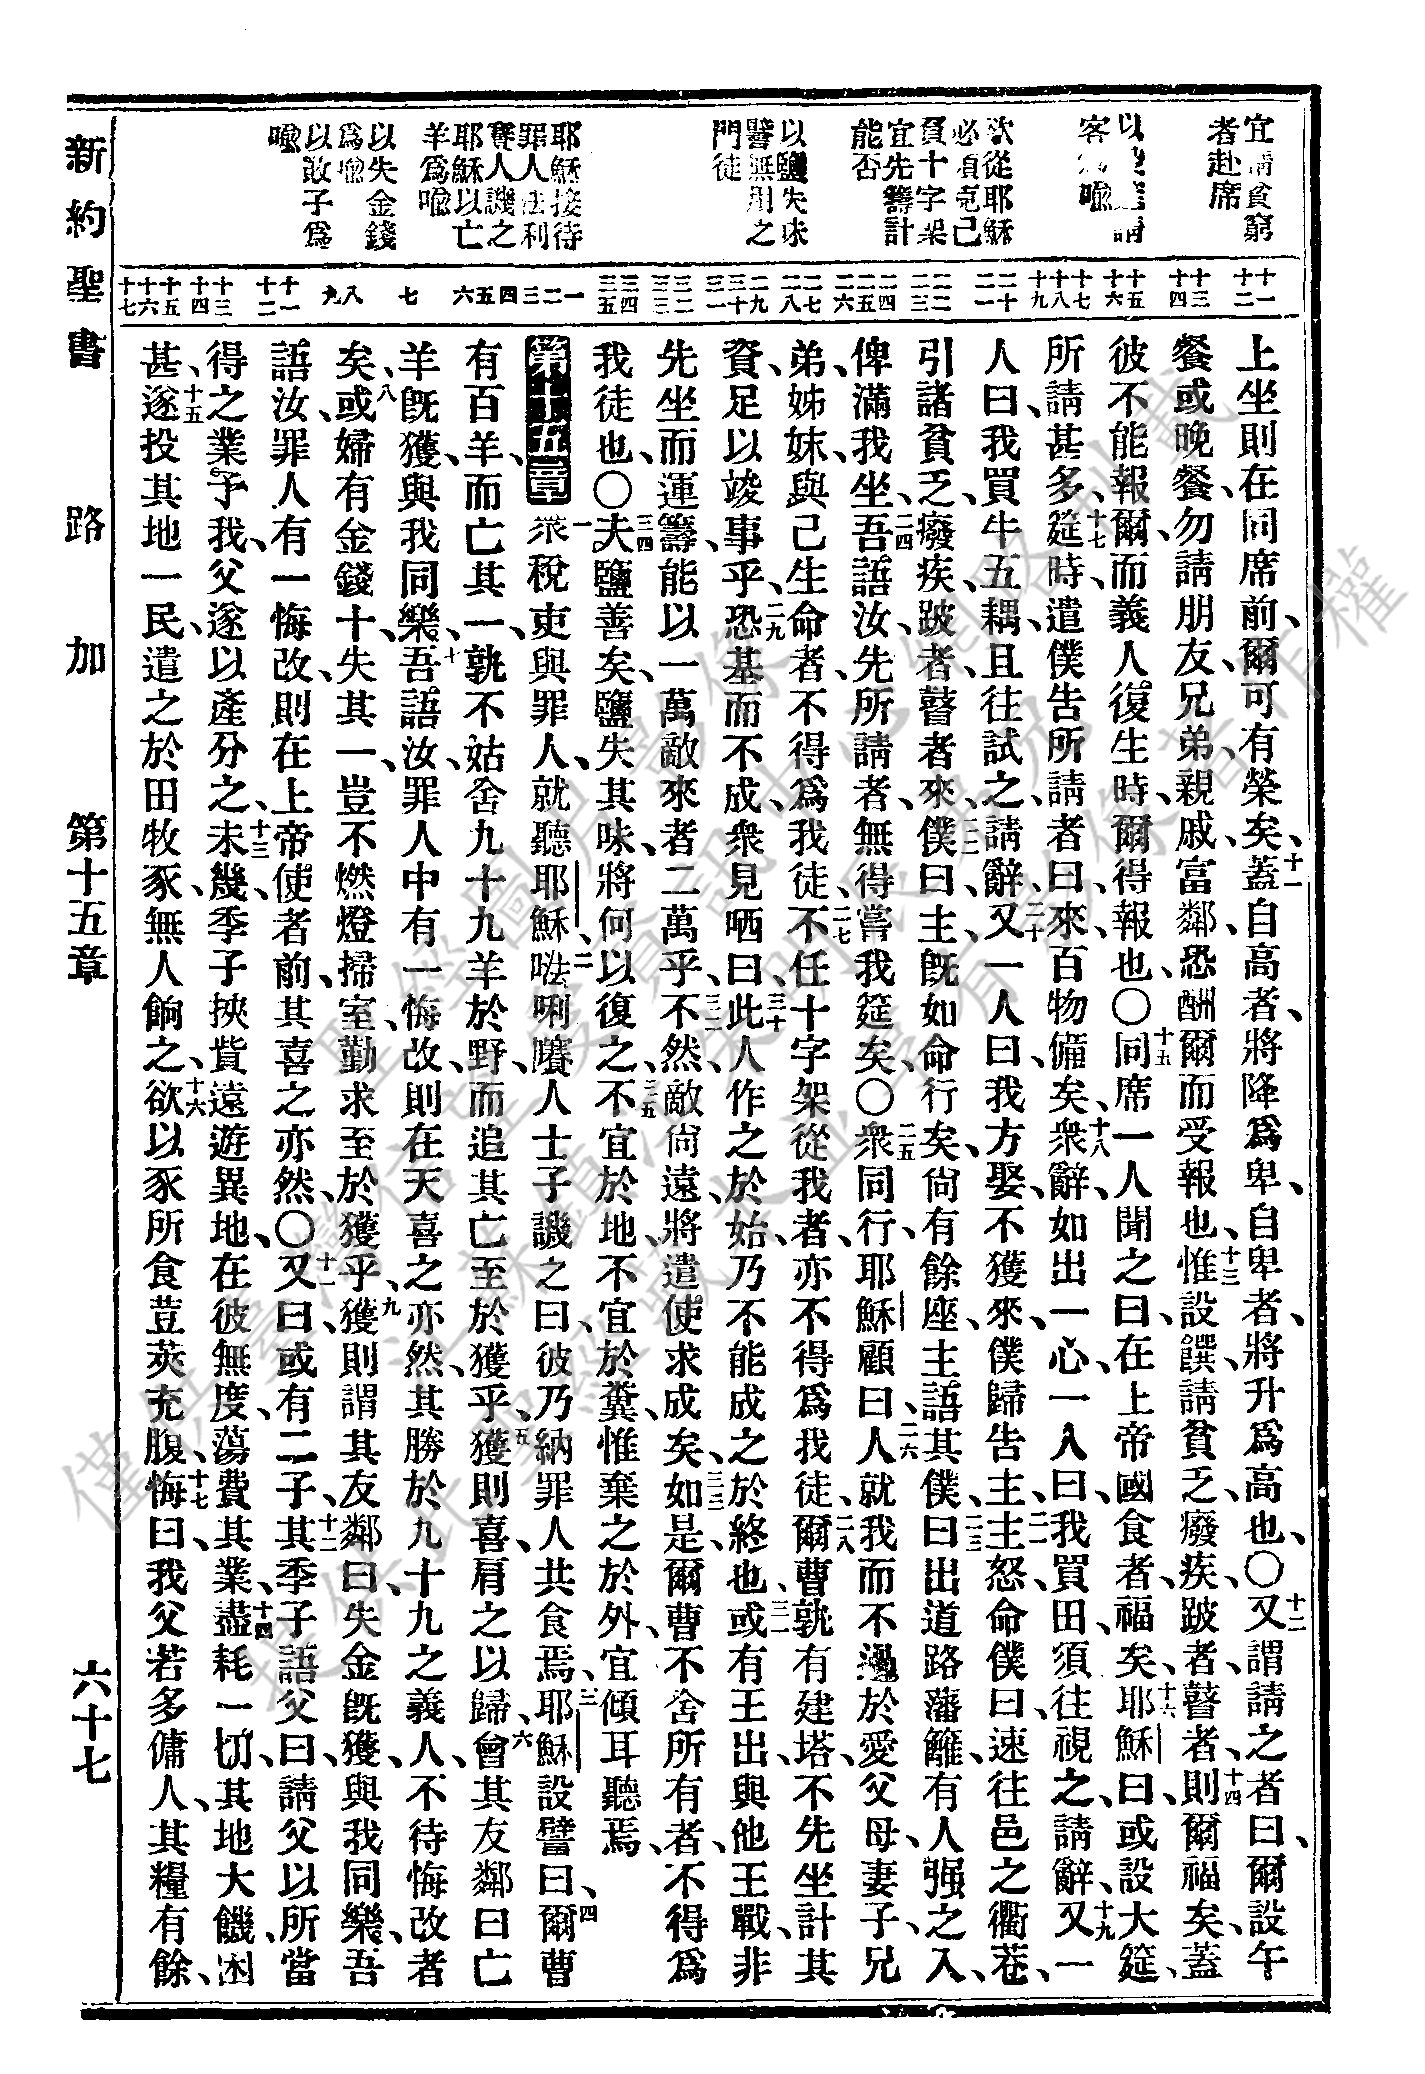 宜請貧窮
者赴席
客爲喻
欲從耶穌
必須克己
負十字架
宜先籌計
能否
以鹽失味
譬無用之
門徒
耶穌接待
罪人法利
賽人譏之
耶穌以亡
羊爲喻
以失金錢
爲喻
以敗子爲
喻
十一
十二
十三
十四
十五
十六
十七
十八
十九
二十
二一
二二
二三
二四
二五
二六
二七
二八
二九
三十
三一
三二
三三
三四
三五
一
二
三
四
五
六
七
八
九
十一
十二
十三
十四
十五
十六
十七
上坐則在同席前、爾可有榮矣、十一蓋自高者、將降爲卑、自卑者、將升爲高也、〇十二又謂請之者曰、爾設午
餐或晚餐、勿請朋友、兄弟、親戚、富鄰、恐酬爾而受報也、十三惟設饌、請貧乏、廢疾、跛者、瞽者、十四則爾福矣、蓋
彼不能報爾、而義人復生時、爾得報也、〇十五同席一人聞之曰、在上帝國食者、福矣、十六耶穌曰、或設大筵、
所請甚多、十七筵時、遣僕告所請者曰、來、百物備矣、十八衆辭、如出一心、一人曰、我買田、須往視之、請辭、十九又一
人曰、我買牛五耦、且往試之、請辭、二十又一人曰、我方娶、不獲來、二一僕歸告主、主怒、命僕曰、速往邑之衢巷、
引諸貧乏、廢疾、跛者、瞽者來、二二僕曰、主、旣如命行矣、尙有餘座、二三主語其僕曰、出道路藩籬、有人强之入、
俾滿我坐、二四吾語汝、先所請者、無得嘗我筵矣、〇二五衆同行、耶穌顧曰、二六人就我而不過於愛父母、妻子、兄
弟、姊妹、與己生命者、不得爲我徒、二七不任十字架從我者、亦不得爲我徒、二八爾曹孰有建塔、不先坐計其
資、足以竣事乎、二九恐基而不成、衆見哂曰、三十此人作之於始、乃不能成之於終也、三一或有王出、與他王戰、非
先坐而運籌、能以一萬敵來者二萬乎、三二不然、敵尙遠、將遣使求成矣、三三如是、爾曹不舍所有者、不得爲
我徒也、〇三四夫鹽善矣、鹽失其味、將何以復之、三五不宜於地、不宜於糞、惟棄之於外、宜傾耳聽焉、
第十五章 一衆稅吏與罪人、就聽耶穌、二𠵽唎㘔人士子譏之曰、彼乃納罪人共食焉、三耶穌設譬曰、四爾曹
有百羊、而亡其一、孰不姑舍九十九羊於野、而追其亡、至於獲乎、五獲則喜、肩之以歸、六會其友鄰曰、亡
羊旣獲、與我同樂、七吾語汝、罪人中有一悔改、則在天喜之亦然、其勝於九十九之義人、不待悔改者
矣、八或婦有金錢十、失其一、豈不燃燈掃室、勤求至於獲乎、九獲則謂其友鄰曰、失金旣獲、與我同樂、吾
語汝、罪人有一悔改、則在上帝使者前、其喜之亦然、〇十一又曰、或有二子、十二其季子語父曰、請父以所當
得之業予我、父遂以產分之、十三未幾、季子挾貲遠遊異地、在彼無度、蕩費其業、十四盡耗一切、其地大饑、困
甚、十五遂投其地一民、遣之於田牧豕、無人餉之、十六欲以豕所食荳莢充腹、十七悔曰、我父若多傭人、其糧有餘、
新約聖書　路加　第十五章　六十七